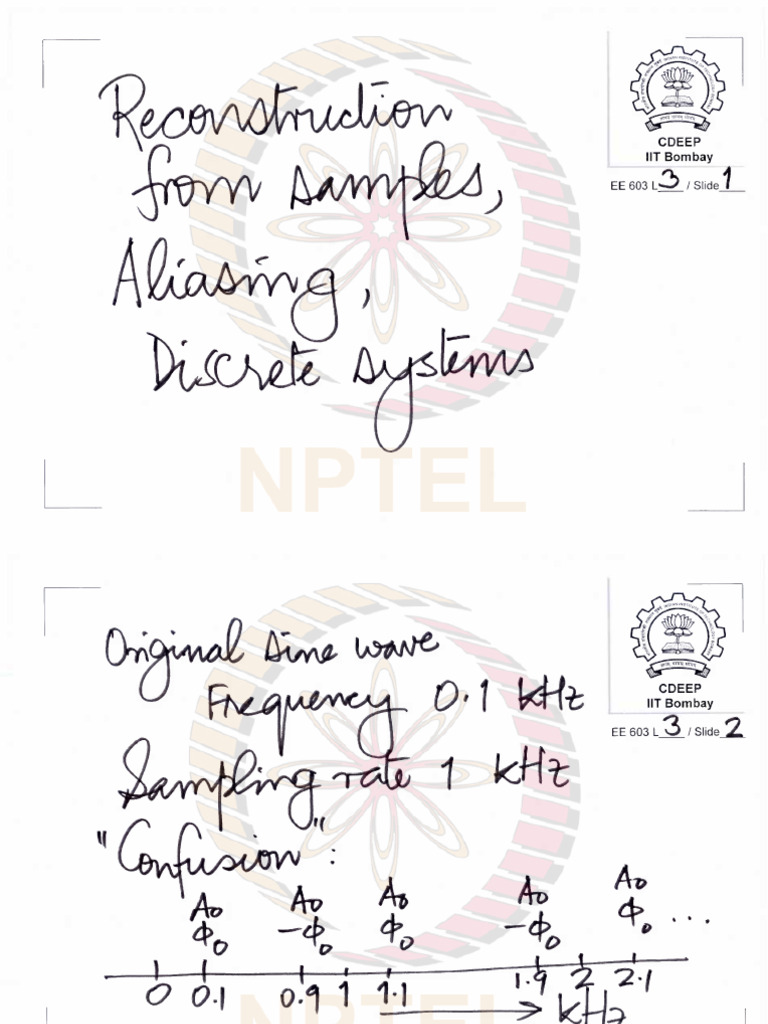 CDEEP
IIT Bombay
EE 603 L 3 / Slide 1
Reconstruction
from samples,
Aliasing,
Discrete systems
NPTEL
CDEEP
IIT Bombay
EE 603 L 3 / Slide 2
Original sine wave
Frequency 0.1 kHz
Sampling rate 1 kHz
"Confusion":
A₀ A₀ A₀ A₀ A₀
ϕ₀ -ϕ₀ ϕ₀ -ϕ₀ ϕ₀ ...
0 0.1 0.9 1 1.1 1.9 2 2.1
kHz
NPTEL